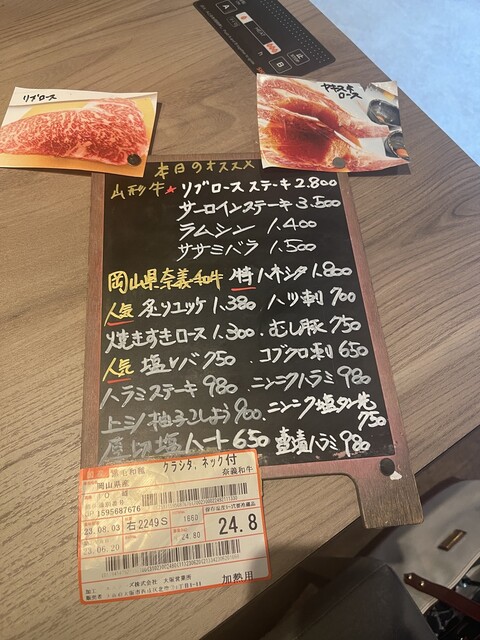 リブロース
ヤキスキ
ロース
本日のオススメ
山形牛★ リブロースステーキ 2.800
サーロインステーキ 3.500
ラムシン 1.400
ササミバラ 1.500
岡山県奈義和牛 特ハネシタ 1.800
人気 炙りユッケ 1.380 ハツ刺 700
焼きすきロース 1.300 . むし豚 750
人気 塩レバ 750 コブクロ刺 650
ハラミステーキ 980 ニンニクハラミ 980
上ミノ柚子こしょう 900 ニンニク塩タン先 750
厚切塩ハート 650 壺漬ハラミ 980
黒毛和種 クラシタ,ネック付
奈義和牛
岡山県産
1595687676
23.08.03 右2249S 1660 24.8
23.06.20 24.80
大阪営業所
加熱用